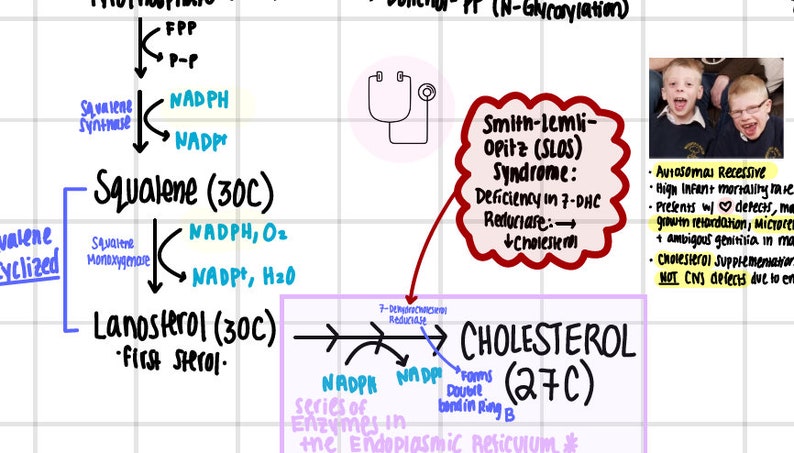 Dolichol-PP (N-Glycosylation)
FPP
P-P
Squalene
Synthase
NADPH
NADP+
Squalene (30C)
Squalene
Monoxygenase
NADPH, O2
NADP+, H2O
Cyclized
Lanosterol (30C)
·First sterol·
Smith-Lemli-
Opitz (SLOS)
Syndrome:
Deficiency in 7-DHC
Reductase: →
↓Cholesterol
· Autosomal Recessive
· High Infant mortality rate
· Presents w/ ♡ defects,
growth retardation,
+ ambigous genitilia in
· Cholesterol Supplementation
NOT CNS defects due to
7-Dehydrocholesterol
Reductase
CHOLESTEROL
(27C)
NADPH
NADP+
Forms
Double
bond in Ring B
series of
Enzymes in
the Endoplasmic Reticulum *